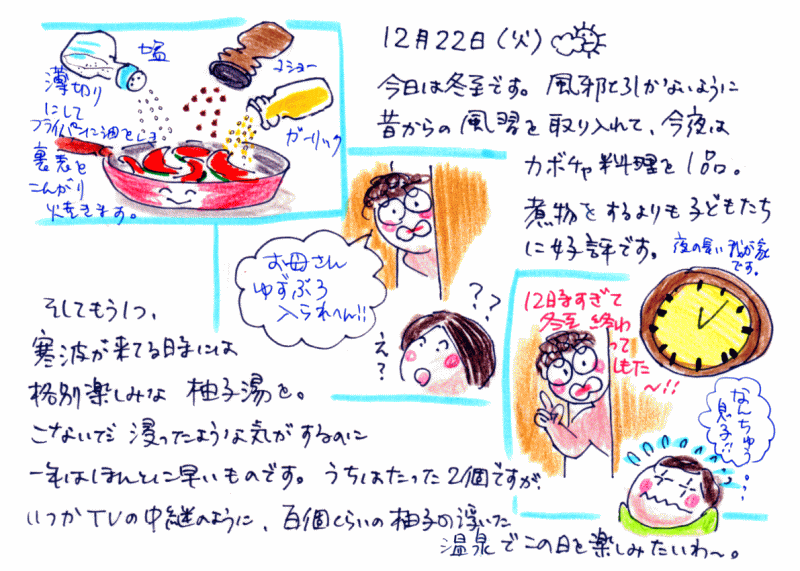 12月22日(火)
今日は冬至です。風邪を引かないように
昔からの風習を取り入れて、今夜は
カボチャ料理を1品。
煮物をするよりも子どもたち
に好評です。
夜の長い我が家
です。
塩
コショー
ガーリック
薄切り
にして
フライパンに油をしき
裏表を
こんがり
焼きます。
お母さん
ゆずぶろ
入られへん!!
??
え?
12時すぎて
冬至 終わ
って
しもた
〜!!
なんちゅう
息子!!
そしてもう1つ、
寒波が来てる日時には
格別楽しみな 柚子湯を。
こないだ 浸ったような気がするのに
一年はほんとに早いものです。うちはたった2個ですが、
いつかTVの中継のように、百個くらいの柚子の浮いた
温泉でこの日を楽しみたいわ〜。